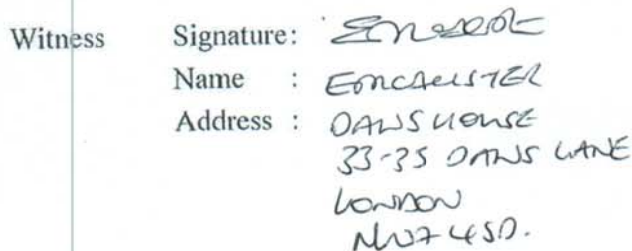 Witness Signature:
Name : E MCALLISTER
Address : DAWS HOUSE
33-35 DAWS LANE
LONDON
NW7 4SD.